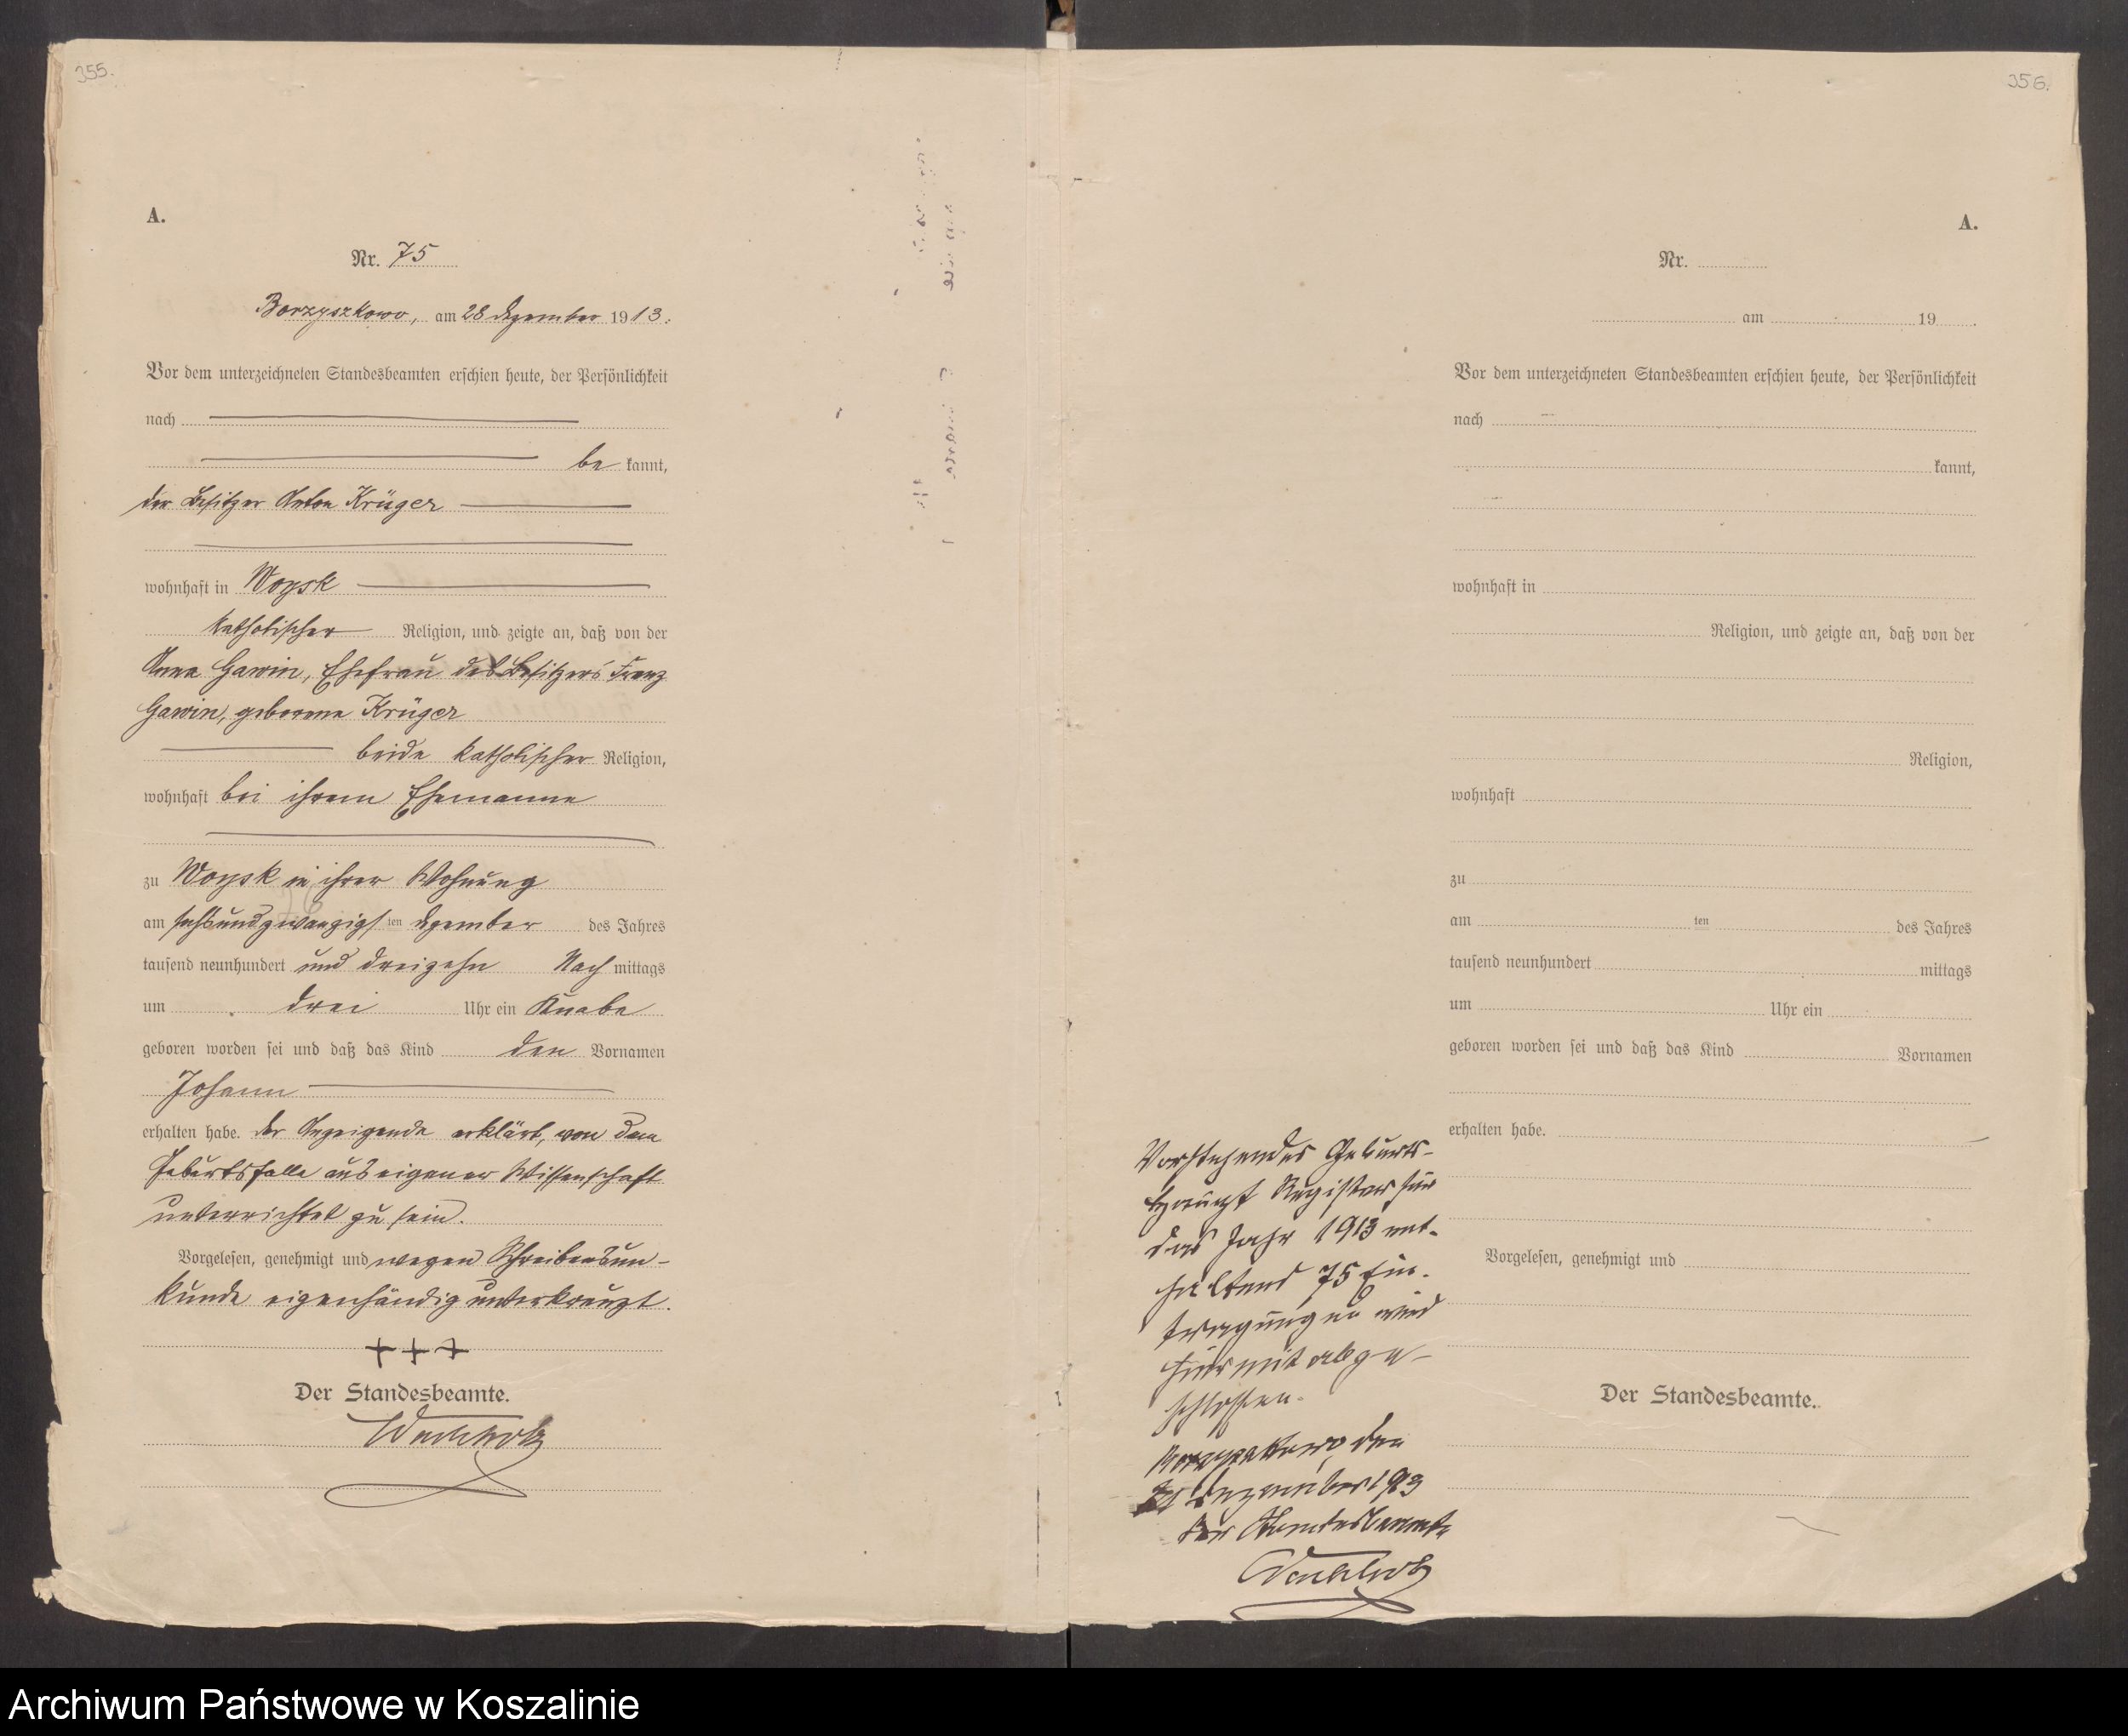 355.
A.
Nr. 75
Borzyszkowo, am 28 Dezember 1913.
Vor dem unterzeichneten Standesbeamten erschien heute, der Persönlichkeit
nach
be kannt,
der Besitzer Anton Krüger
wohnhaft in Woysk
katholischer Religion, und zeigte an, daß von der
Anna Gawin, Ehefrau des Besitzers Franz
Gawin, geborene Krüger
beide katholischer Religion,
wohnhaft bei ihrem Ehemanne
zu Woysk in ihrer Wohnung
am sechsundzwanzigsten Dezember des Jahres
tausend neunhundert und dreizehn Nach mittags
um drei Uhr ein Knabe
geboren worden sei und daß das Kind den Vornamen
Johann
erhalten habe. Der Anzeigende erklärt, von dem
Geburtsfalle aus eigener Wissenschaft
unterrichtet zu sein.
Vorgelesen, genehmigt und wegen Schreibensun-
kunde eigenhändig unterkreuzt.
+++
Der Standesbeamte.
356.
A.
Nr.
am 19 .
Vor dem unterzeichneten Standesbeamten erschien heute, der Persönlichkeit
nach
kannt,
wohnhaft in
Religion, und zeigte an, daß von der
Religion,
wohnhaft
zu
am ten des Jahres
tausend neunhundert mittags
um Uhr ein
geboren worden sei und daß das Kind Vornamen
erhalten habe.
Vorgelesen, genehmigt und
Der Standesbeamte.
Vorstehendes Geburts-
Haupt Register für
das Jahr 1913 ent-
haltend 75 Ein-
tragungen wird
hiermit abge-
schlossen.
Borzyszkowo, den
31 Dezember 1913
Der Standesbeamte
Archiwum Państwowe w Koszalinie